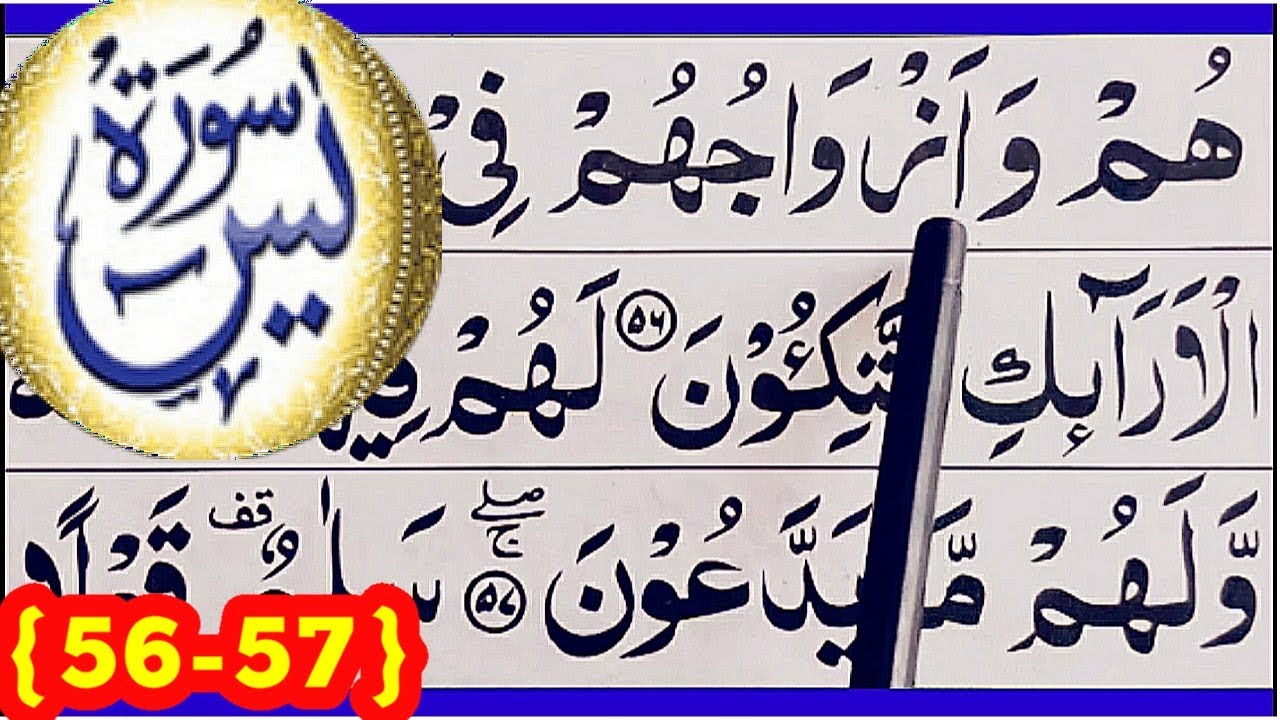 سُورَة
يٰسٓ
هُمْ وَاَزْوَاجُهُمْ فِيْ
الْاَرَآئِكِ مُتَّكِـُٔوْنَ ۵۶ لَهُمْ
وَّلَهُمْ مَّا يَدَّعُوْنَ ۵۷ صلے ج سَلٰمٌ قف قَوْلًا
{56-57}